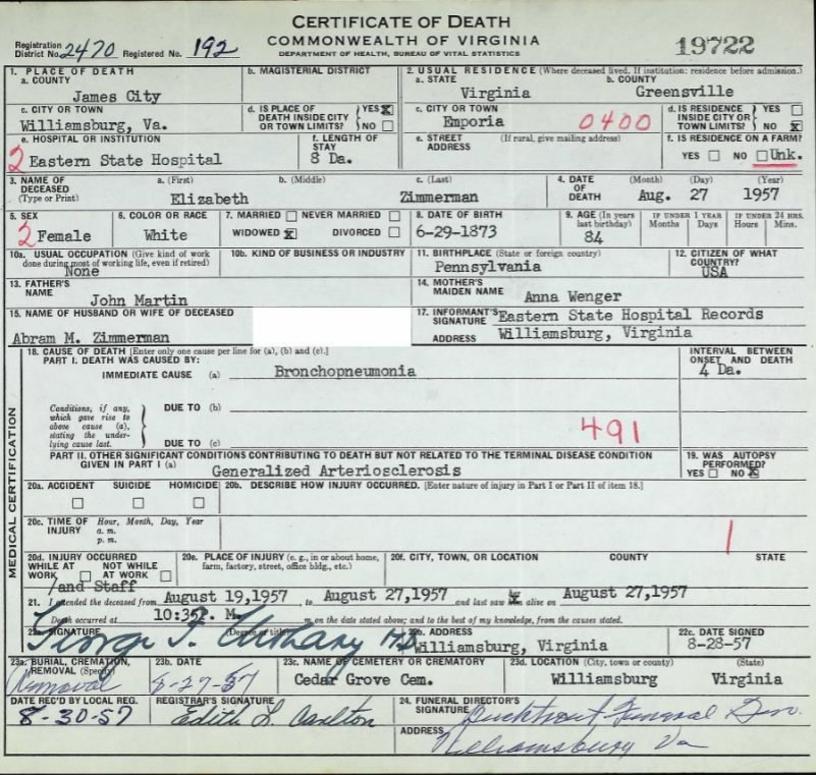 CERTIFICATE OF DEATH
COMMONWEALTH OF VIRGINIA
DEPARTMENT OF HEALTH, BUREAU OF VITAL STATISTICS
Registration District No. 2470 Registered No. 192
19722
1. PLACE OF DEATH
a. COUNTY
James City
b. MAGISTERIAL DISTRICT
2. USUAL RESIDENCE (Where deceased lived. If institution: residence before admission.)
a. STATE
Virginia
b. COUNTY
Greensville
c. CITY OR TOWN
Williamsburg, Va.
d. IS PLACE OF DEATH INSIDE CITY OR TOWN LIMITS? YES X NO
c. CITY OR TOWN
Emporia
0400
d. IS RESIDENCE INSIDE CITY OR TOWN LIMITS? YES NO X
e. HOSPITAL OR INSTITUTION
2 Eastern State Hospital
f. LENGTH OF STAY
8 Da.
e. STREET ADDRESS (If rural, give mailing address)
f. IS RESIDENCE ON A FARM?
YES NO Unk.
3. NAME OF DECEASED (Type or Print)
a. (First)
Elizabeth
b. (Middle)
c. (Last)
Zimmerman
4. DATE OF DEATH
(Month) (Day) (Year)
Aug. 27 1957
5. SEX
2 Female
6. COLOR OR RACE
White
7. MARRIED NEVER MARRIED
WIDOWED X DIVORCED
8. DATE OF BIRTH
6-29-1873
9. AGE (In years last birthday)
84
IF UNDER 1 YEAR
Months Days
IF UNDER 24 HRS.
Hours Mins.
10a. USUAL OCCUPATION (Give kind of work done during most of working life, even if retired)
None
10b. KIND OF BUSINESS OR INDUSTRY
11. BIRTHPLACE (State or foreign country)
Pennsylvania
12. CITIZEN OF WHAT COUNTRY?
USA
13. FATHER'S NAME
John Martin
14. MOTHER'S MAIDEN NAME
Anna Wenger
15. NAME OF HUSBAND OR WIFE OF DECEASED
Abram M. Zimmerman
17. INFORMANT'S SIGNATURE Eastern State Hospital Records
ADDRESS Williamsburg, Virginia
18. CAUSE OF DEATH [Enter only one cause per line for (a), (b) and (c).]
PART I. DEATH WAS CAUSED BY:
IMMEDIATE CAUSE (a) Bronchopneumonia
INTERVAL BETWEEN ONSET AND DEATH
4 Da.
Conditions, if any, which gave rise to above cause (a), stating the underlying cause last.
DUE TO (b)
DUE TO (c)
491
PART II. OTHER SIGNIFICANT CONDITIONS CONTRIBUTING TO DEATH BUT NOT RELATED TO THE TERMINAL DISEASE CONDITION GIVEN IN PART I (a)
Generalized Arteriosclerosis
19. WAS AUTOPSY PERFORMED?
YES NO X
20a. ACCIDENT SUICIDE HOMICIDE
20b. DESCRIBE HOW INJURY OCCURRED. [Enter nature of injury in Part I or Part II of item 18.]
20c. TIME OF INJURY Hour, Month, Day, Year
a. m.
p. m.
1
20d. INJURY OCCURRED
WHILE AT WORK NOT WHILE AT WORK
20e. PLACE OF INJURY (e. g., in or about home, farm, factory, street, office bldg., etc.)
20f. CITY, TOWN, OR LOCATION COUNTY STATE
/and Staff
21. I attended the deceased from August 19,1957, to August 27,1957 and last saw alive on August 27,1957
Death occurred at M. m on the date stated above; and to the best of my knowledge, from the causes stated.
22a. SIGNATURE (Degree or title)
George
22b. ADDRESS
Williamsburg, Virginia
22c. DATE SIGNED
8-28-57
23a. BURIAL, CREMATION, REMOVAL (Specify)
Removal
23b. DATE
8-27-57
23c. NAME OF CEMETERY OR CREMATORY
Cedar Grove Cem.
23d. LOCATION (City, town or county) (State)
Williamsburg Virginia
DATE REC'D BY LOCAL REG.
8-30-57
REGISTRAR'S SIGNATURE
Edith L. Carlton
24. FUNERAL DIRECTOR'S SIGNATURE
Bucktrout Funeral
ADDRESS
Williamsburg Va
MEDICAL CERTIFICATION